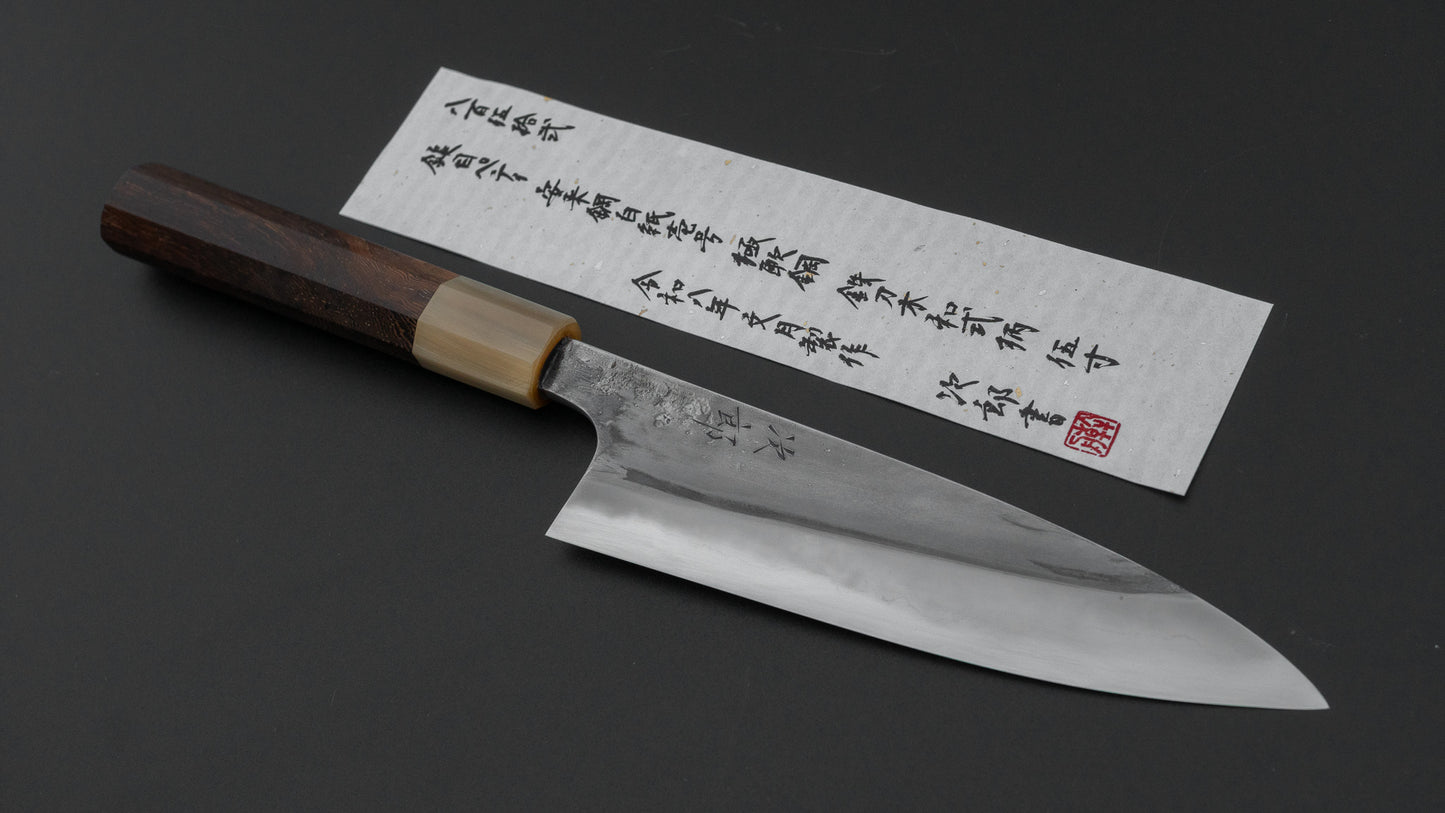 八百伍拾弐
鎚目ペティ 安来鋼白紙壱号 極軟鋼 鉄刀木和式柄 伍寸
令和八年文月製作
次郎書
次郎